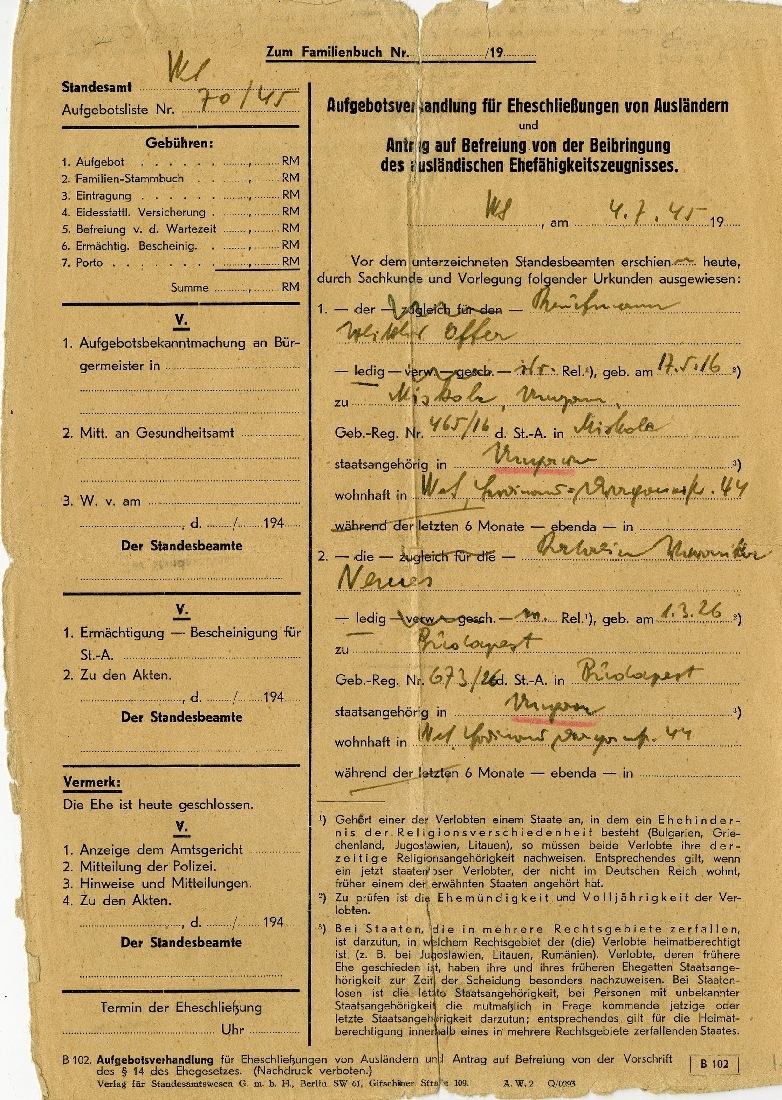 Zum Familienbuch Nr. /19
Standesamt
Aufgebotsliste Nr. 70/45
Gebühren:
1. Aufgebot RM
2. Familien-Stammbuch RM
3. Eintragung RM
4. Eidesstattl. Versicherung RM
5. Befreiung v. d. Wartezeit RM
6. Ermächtig. Bescheinig. RM
7. Porto RM
Summe RM
V.
1. Aufgebotsbekanntmachung an Bür-
germeister in
2. Mitt. an Gesundheitsamt
3. W. v. am
, d. / 194
Der Standesbeamte
V.
1. Ermächtigung — Bescheinigung für
St.-A.
2. Zu den Akten.
, d. / 194
Der Standesbeamte
Vermerk:
Die Ehe ist heute geschlossen.
V.
1. Anzeige dem Amtsgericht
2. Mitteilung der Polizei.
3. Hinweise und Mitteilungen.
4. Zu den Akten.
, d. / 194
Der Standesbeamte
Termin der Eheschließung
Uhr
Aufgebotsverhandlung für Eheschließungen von Ausländern
und
Antrag auf Befreiung von der Beibringung
des ausländischen Ehefähigkeitszeugnisses.
, am 4.7.45 19
Vor dem unterzeichneten Standesbeamten erschien heute,
durch Sachkunde und Vorlegung folgender Urkunden ausgewiesen:
1. — der — zugleich für den — Kaufmann
Offer
— ledig — verw. — gesch. — Rel.¹), geb. am 17.5.16 ²)
zu Miskolc, Ungarn
Geb.-Reg. Nr. 465/16 d. St.-A. in Miskolc
staatsangehörig in Ungarn ³)
wohnhaft in 44
während der letzten 6 Monate — ebenda — in
2. — die — zugleich für die —
Nemes
— ledig — verw. — gesch. — Rel.¹), geb. am 1.3.26 ²)
zu Budapest
Geb.-Reg. Nr. 673/26 d. St.-A. in Budapest
staatsangehörig in Ungarn ³)
wohnhaft in 44
während der letzten 6 Monate — ebenda — in
¹) Gehört einer der Verlobten einem Staate an, in dem ein Ehehinder-
nis der Religionsverschiedenheit besteht (Bulgarien, Grie-
chenland, Jugoslawien, Litauen), so müssen beide Verlobte ihre der-
zeitige Religionsangehörigkeit nachweisen. Entsprechendes gilt, wenn
ein jetzt staatenloser Verlobter, der nicht im Deutschen Reich wohnt,
früher einem der erwähnten Staaten angehört hat.
²) Zu prüfen ist die Ehemündigkeit und Volljährigkeit der Ver-
lobten.
³) Bei Staaten, die in mehrere Rechtsgebiete zerfallen,
ist darzutun, in welchem Rechtsgebiet der (die) Verlobte heimatberechtigt
ist (z. B. bei Jugoslawien, Litauen, Rumänien). Verlobte, deren frühere
Ehe geschieden ist, haben ihre und ihres früheren Ehegatten Staatsange-
hörigkeit zur Zeit der Scheidung besonders nachzuweisen. Bei Staaten-
losen ist die letzte Staatsangehörigkeit, bei Personen mit unbekannter
Staatsangehörigkeit die mutmaßlich in Frage kommende jetzige oder
letzte Staatsangehörigkeit darzutun; entsprechendes gilt für die Heimat-
berechtigung innerhalb eines in mehrere Rechtsgebiete zerfallenden Staates.
B 102. Aufgebotsverhandlung für Eheschließungen von Ausländern und Antrag auf Befreiung von der Vorschrift
des § 14 des Ehegesetzes. (Nachdruck verboten.)
B 102
Verlag für Standesamtswesen G. m. b. H., Berlin SW 61, Gitschiner Straße 109. A. W. 2